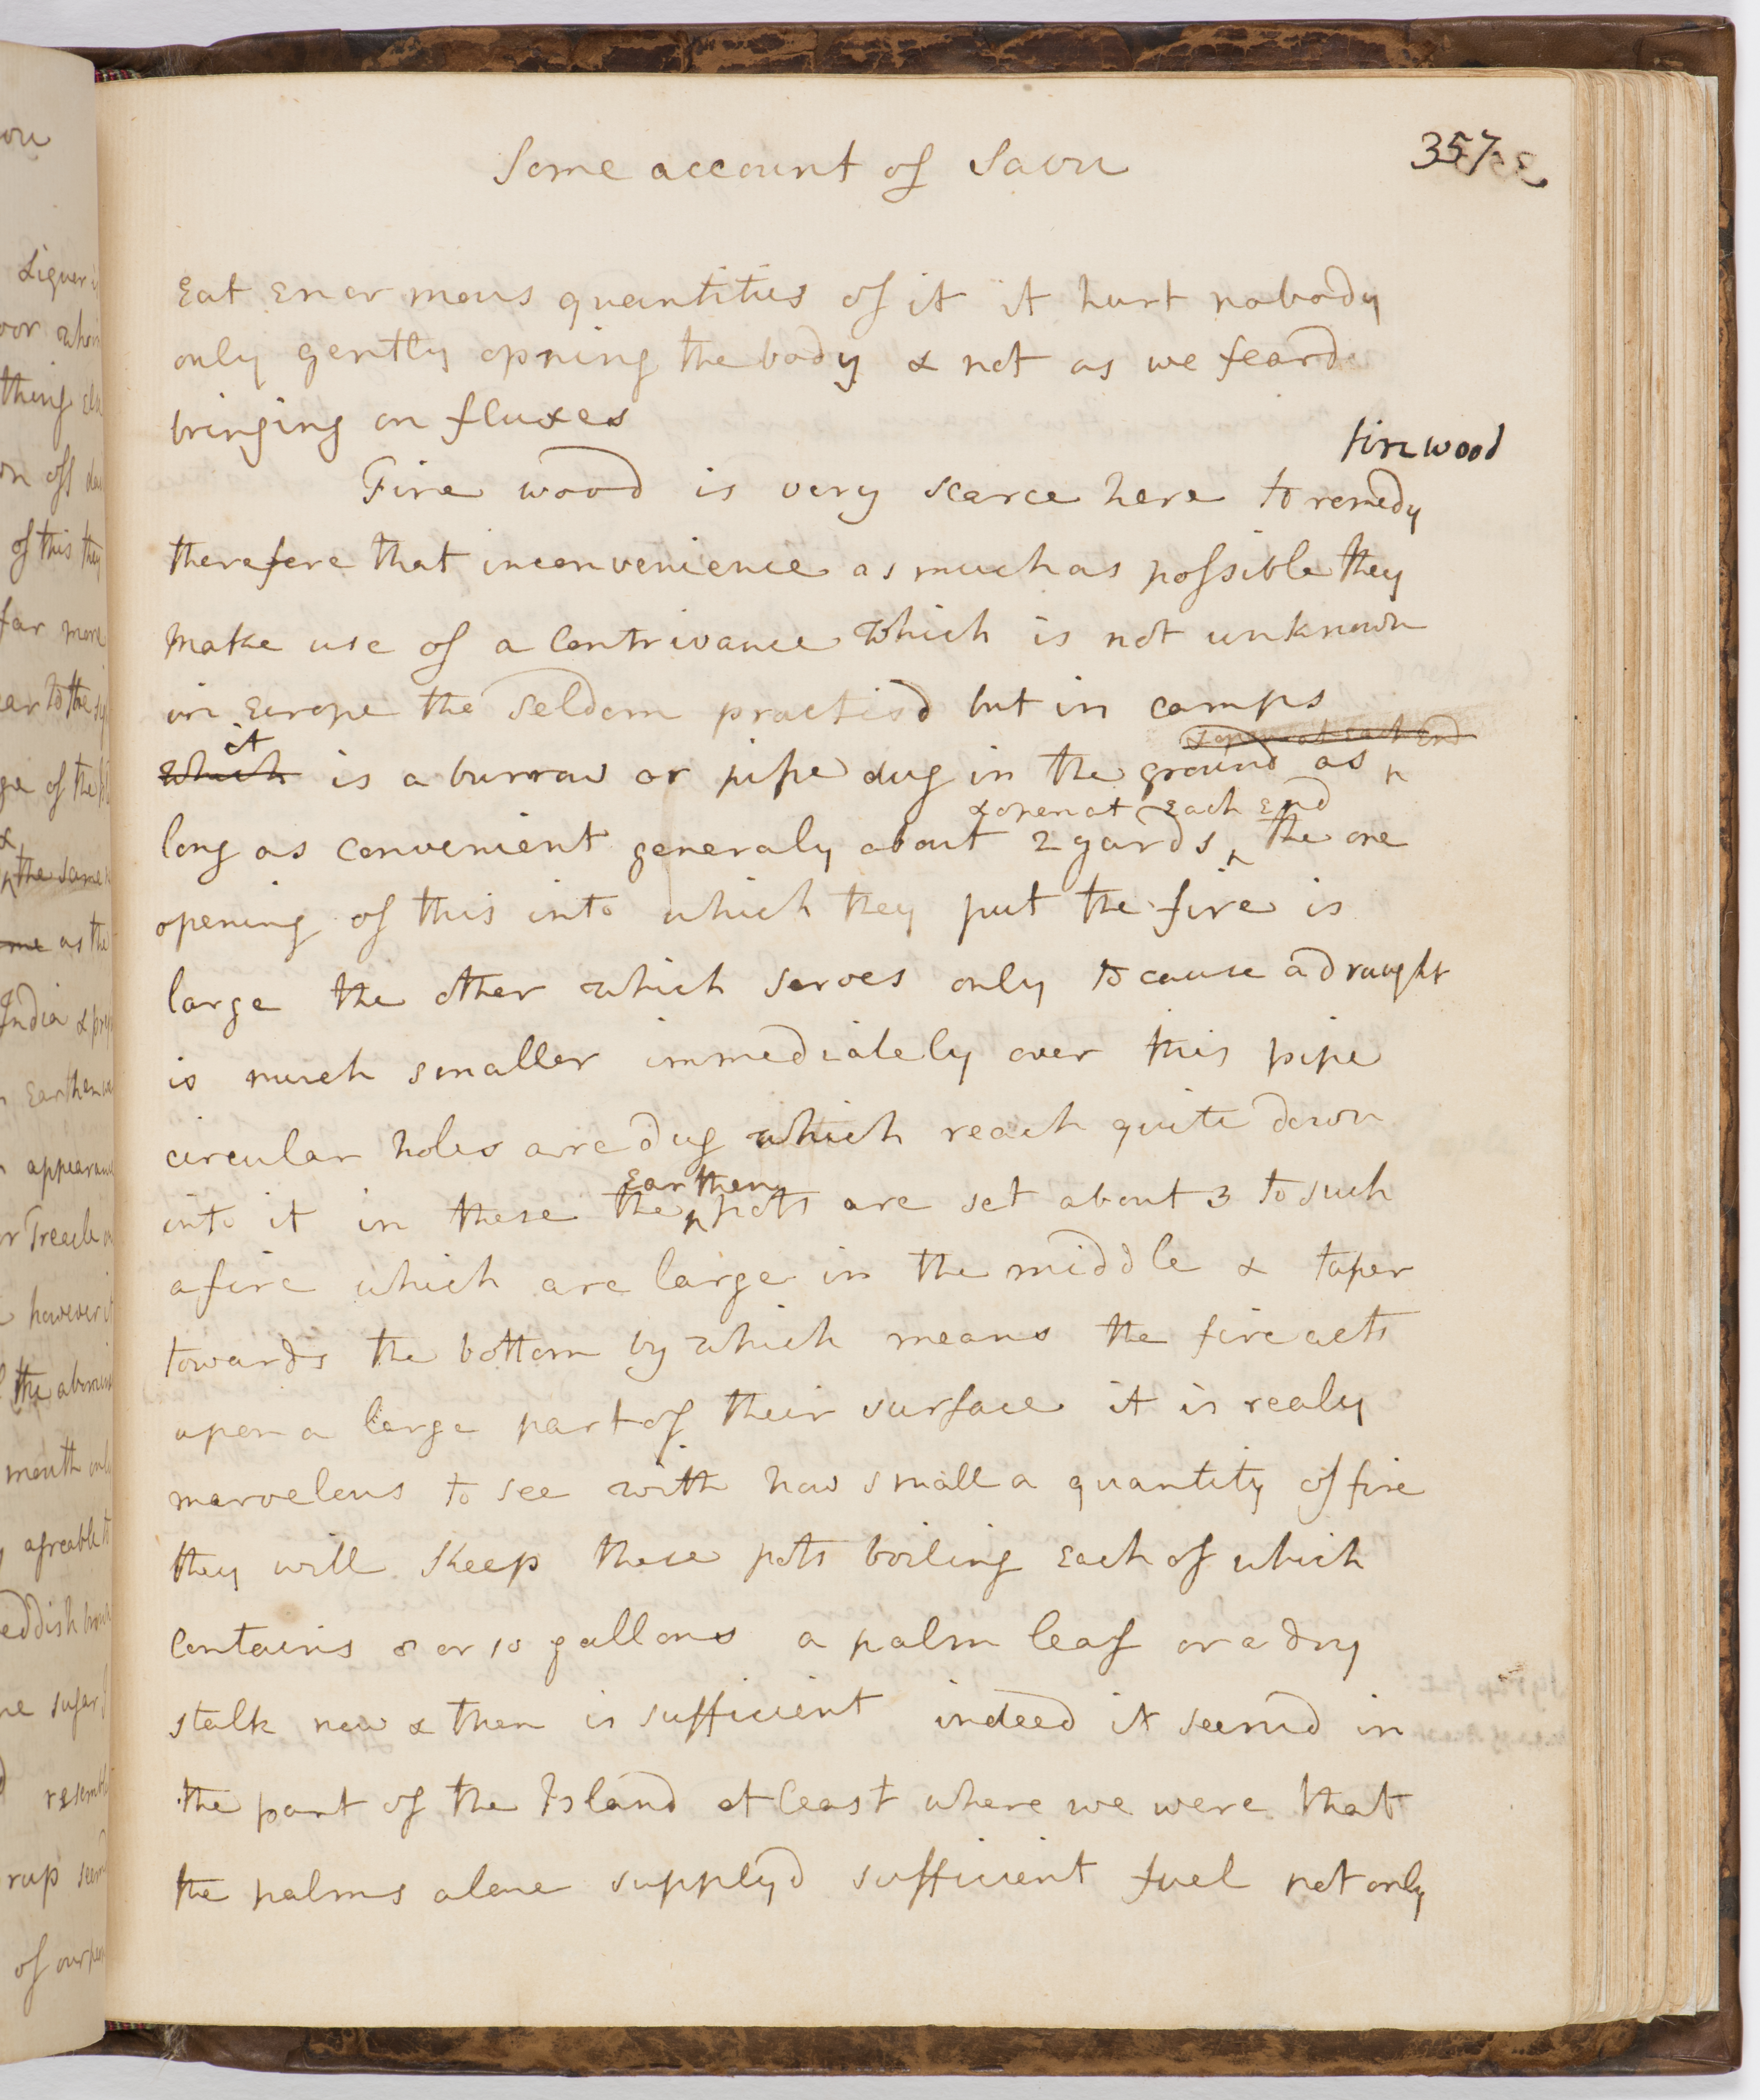 Some account of Savu
357
Eat enormous quantities of it it hurt nobody
only gently opning the body & not as we feard
bringing on fluxes
firewood
Fire wood is very scarce here to remedy
therefore that inconvenience as much as possible they
make use of a Contrivance which is not unknown
in Europe tho Seldom practisd but in camps
it
& open at each End
which is a burrow or pipe dug in the ground as
& open at Each End
long as convenient generaly about 2 yards the one
opening of this into which they put the fire is
large the other which serves only to cause a draught
is much smaller immediately over this pipe
circular holes are dug which reach quite down
Earthen
into it in these the pots are set about 3 to such
a fire which are large in the middle & taper
towards the bottom by which means the fire acts
upon a large part of their surface it is realy
marvelous to see with how small a quantity of fire
they will Keep these pots boiling Each of which
Contains 8 or 10 gallons a palm leaf or a dry
stalk now & then is sufficient indeed it seemd in
the part of the Island at least where we were that
the palms alone supplyd sufficient fuel not only
ou
Liquer
thing
on off
of this they
far more
ge of the
&
the same
me as the
India &
Earthen
appearance
or Treacle
however it
the
mouth
agreable
eddish
ne sugar
rup
of our